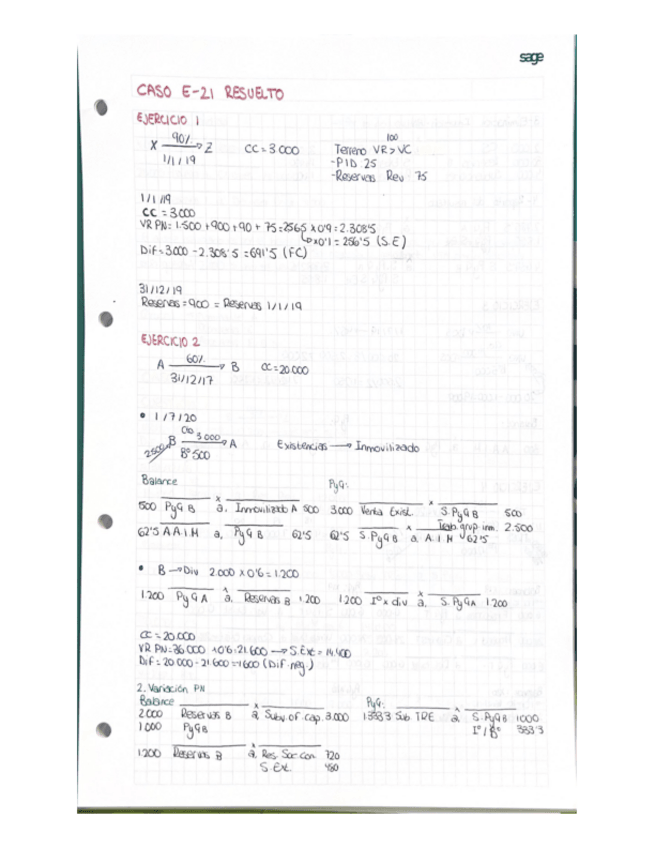 sage
CASO E-21 RESUELTO
EJERCICIO 1
X 90% Z CC = 3.000
1/1/19
100
Terreno VR > VC
- PID 25
- Reservas Rev 75
1/1/19
CC = 3.000
VR PN = 1.500 + 900 + 90 + 75 = 2565 x 0'9 = 2.308'5
x 0'1 = 256'5 (S.E)
Dif = 3.000 - 2.308'5 = 691'5 (FC)
31/12/19
Reservas = 900 = Reservas 1/1/19
EJERCICIO 2
A 60% B CC = 20.000
31/12/17
• 1/7/20
2500 B 3.000 A Existencias → Inmovilizado
Bº 500
Balance PyG:
500 PyG B a Inmovilizado A 500 3.000 Venta Exist. a S.PyG B 500
Trab. grup. inm. 2.500
62'5 A A I M a PyG B 62'5 62'5 S.PyG B a A.I.M 62'5
• B → Div 2.000 x 0'6 = 1.200
1.200 PyG A a Reservas B 1.200 1.200 Iº x div a S.PyG A 1.200
CC = 20.000
VR PN = 36.000 x 0'6 = 21.600 → S.Ext = 14.400
Dif = 20.000 - 21.600 = -1600 (Dif. neg.)
2. Variación PN
Balance PyG:
2.000 Reservas B a Subv. of. cap. 3.000 1333'3 Sub TRE a S.PyG B 1000
1.000 PyG B Iº/Bº 333'3
1.200 Reservas B a Res. Soc Con 720
S.Ext 480